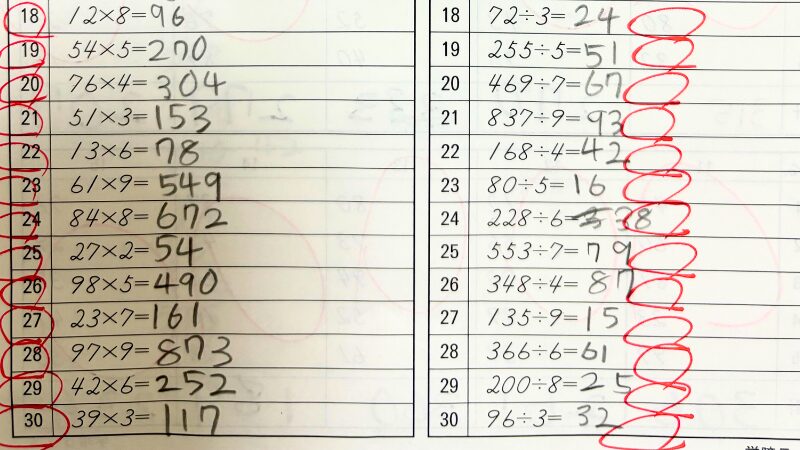 18 12×8=96
19 54×5=270
20 76×4=304
21 51×3=153
22 13×6=78
23 61×9=549
24 84×8=672
25 27×2=54
26 98×5=490
27 23×7=161
28 97×9=873
29 42×6=252
30 39×3=117
18 72÷3=24
19 255÷5=51
20 469÷7=67
21 837÷9=93
22 168÷4=42
23 80÷5=16
24 228÷6=38
25 553÷7=79
26 348÷4=87
27 135÷9=15
28 366÷6=61
29 200÷8=25
30 96÷3=32